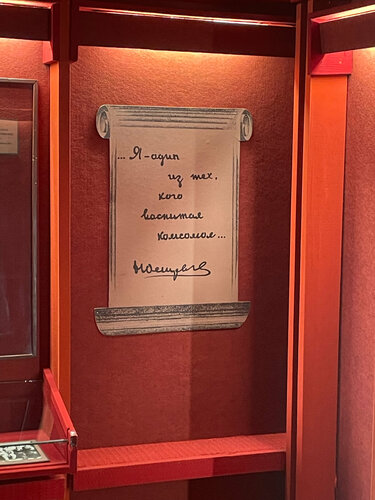 ... Я - один
из тех,
кого
воспитал
комсомол...